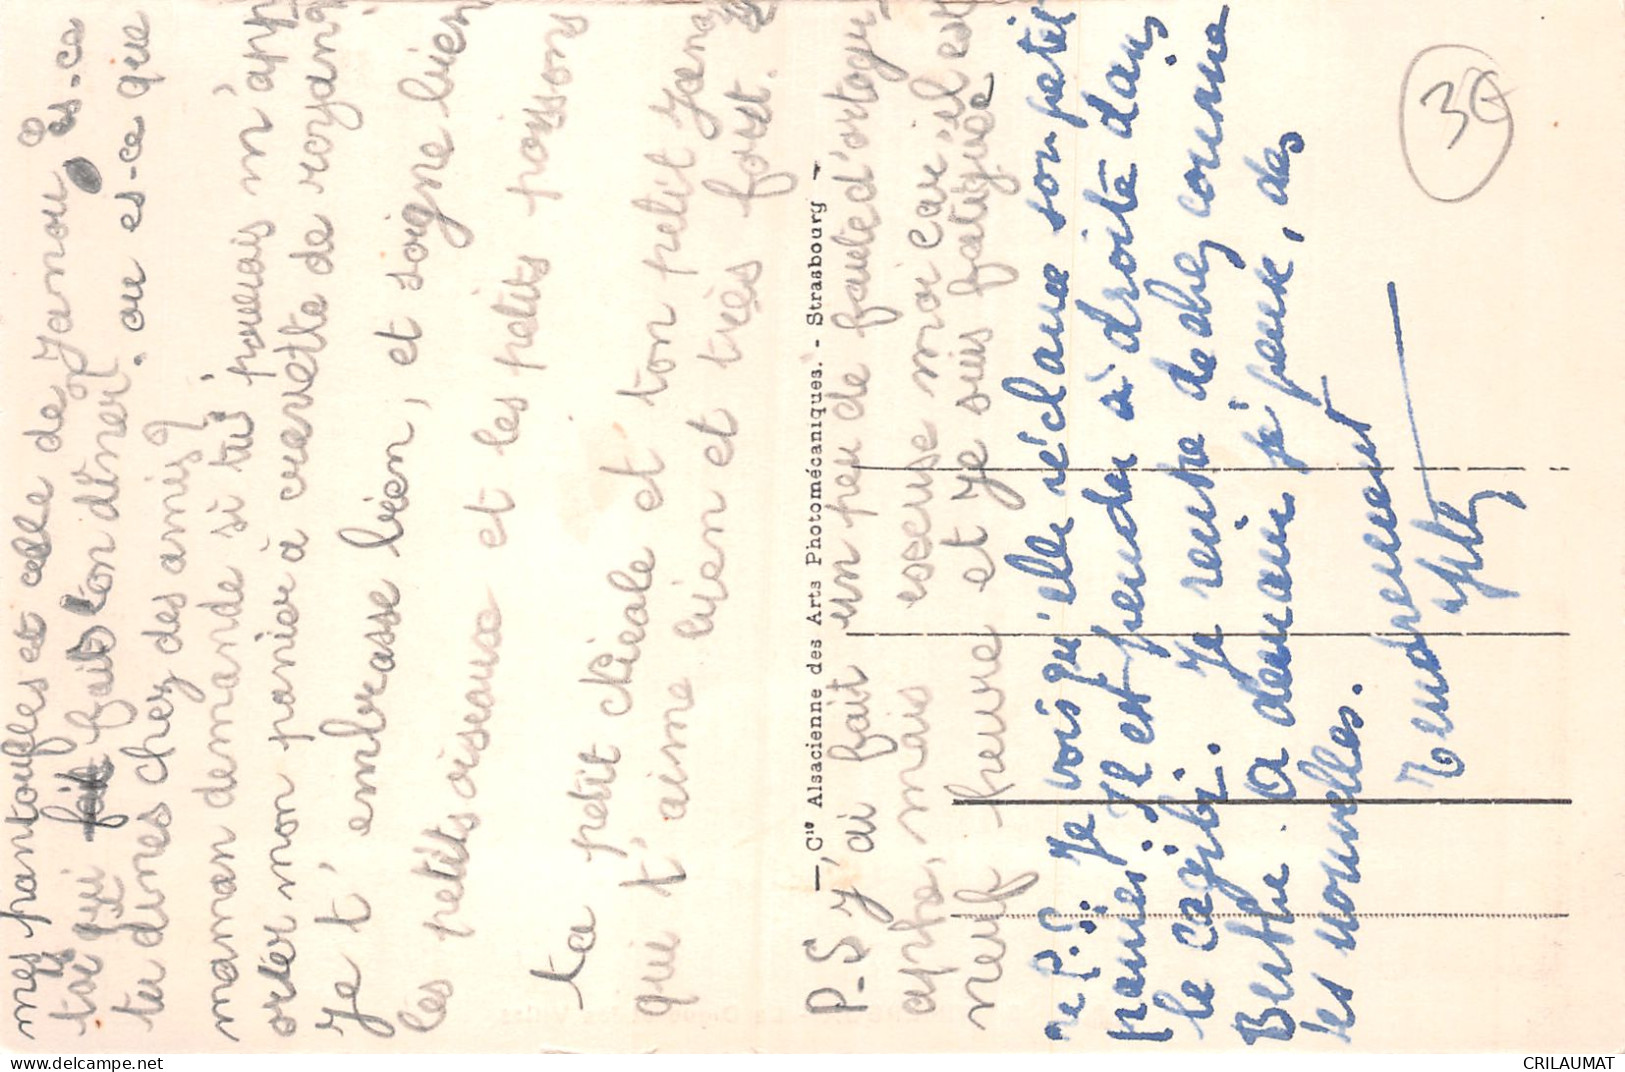 mes pantoufles et celle de Janou es-ce
toi qui fait fait ton dîner. ou es-ce que
tu dînes chez des amis?
maman demande si tu pourrais m'app
orter mon panier à crevette de royan
Je t'embrasse bien, et soigne bien
les petits oiseaux et les petits poissons
ta petit
qui t'aime bien et très fort.
et ton petit Janou
P-S J'ai fait un peu de faute d'ortogr
aphe, mais escuse moi car il est
neuf heure et Je suis fatiguée
2e P.S. Je vois qu'elle réclame son petit
panier. Il est pendu à droite dans
le cagibi. Je rentre de chez cousine
Berthe. A demain je pense, des
tes nouvelles.
Tendrement
—, Cie Alsacienne des Arts Photomécaniques. - Strasbourg
39
CRILAUMAT